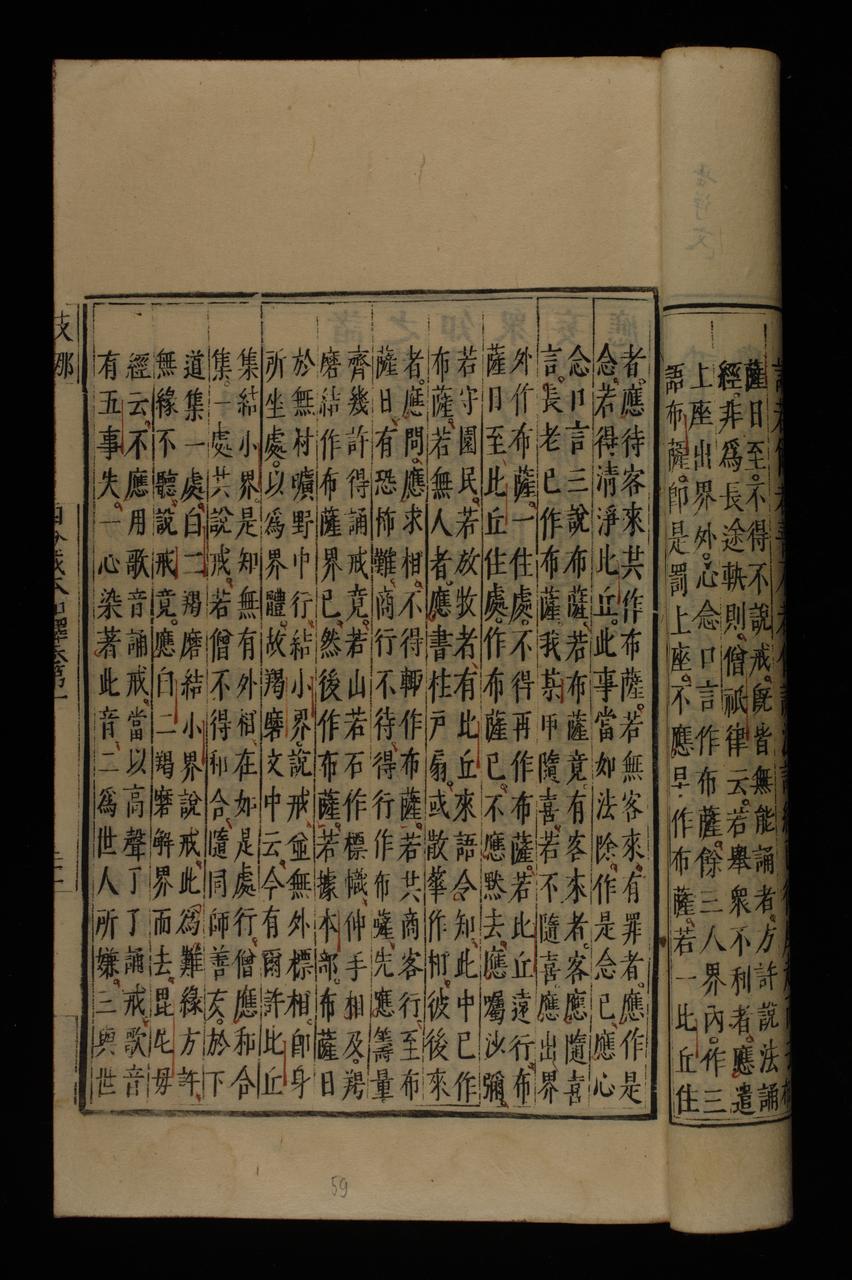 薩日至。不得不說戒。旣皆無能誦者。方許說法誦
經。非爲長途軌則。僧祇律云。若舉衆不利者。應遣
上座出界外。心念口言作布薩。餘三人界內。作三
語布薩。卽是罰上座。不應早作布薩。若一比丘住
者。應待客來共作布薩。若無客來。有罪者。應作是
念。若得清淨比丘。此事當如法除。作是念已。應心
念口言三說布薩。若布薩竟。有客來者。客應隨喜
言。長老已作布薩。我某甲隨喜。若不隨喜。應出界
外作布薩。一住處。不得再作布薩。若比丘遠行。布
薩日至。比丘住處。作布薩已。不應黙去。應囑沙彌
若守園民。若放牧者。有比丘來。語令知。此中已作
布薩。若無人者。應書柱戸扇。或散華作相。彼後來
者。應問。應求相。不得輙作布薩。若共商客行。至布
薩日。有恐怖難。商行不待。得行作布薩。先應籌量
齊幾許得誦戒竟。若山若石作標幟。伸手相及。羯
磨結作布薩界已。然後作布薩。若據本部。布薩日
於無村曠野中行。結小界說戒。並無外標相。卽身
所坐處。以爲界體。故羯磨文中云。今有爾許比丘
集結小界。是知無有外相。在如是處行。僧應和合
集一處共說戒。若僧不得和合。隨同師善友。於下
道集一處。白二羯磨結小界說戒。此爲難緣方許。
無緣不聽。說戒竟。應白二羯磨解界而去。毘尼毋
經云。不應用歌音誦戒。當以高聲了了誦戒。歌音
有五事失。一心染著此音。二爲世人所嫌。三與世
支那
59